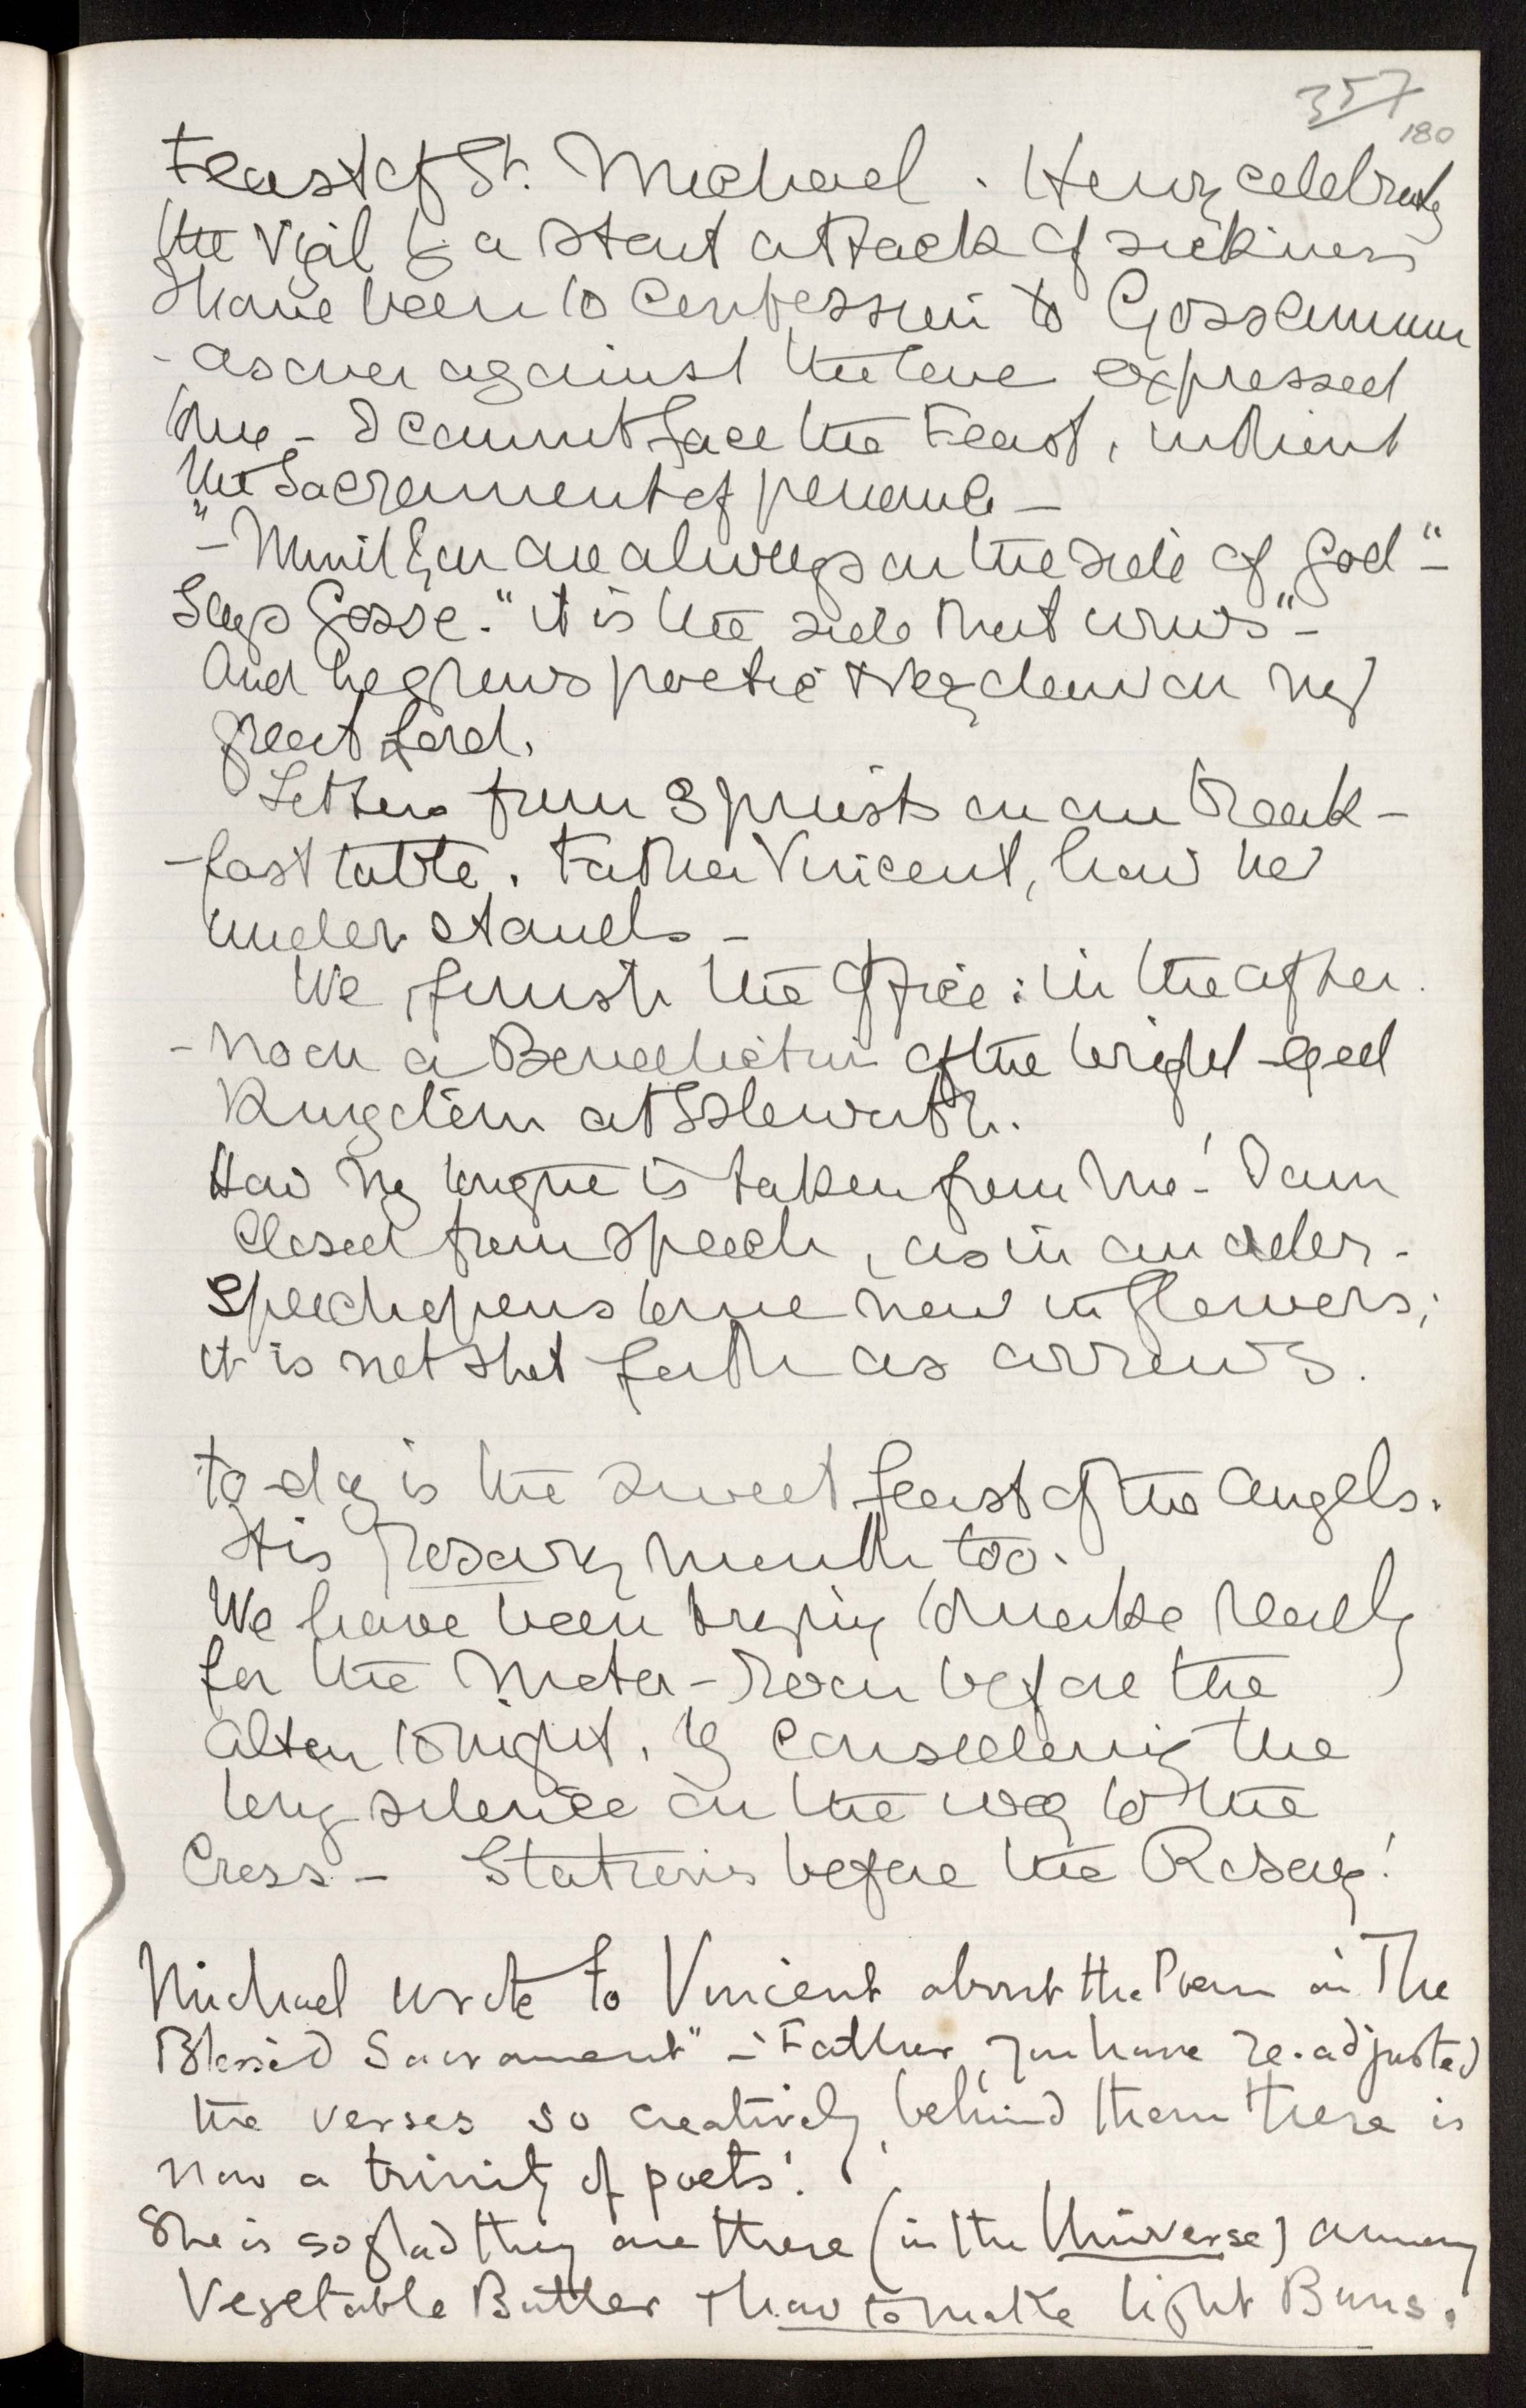 357
180
Feast of St. Michael. Henry celebrates
the Vigil by a stout attack of sickness
I have been to confession to Goscannon
- as over against the love expressed
to me - I cannot face the Feast, without
the Sacrament of penance -
"- Mind you are always on the side of God" -
Says Gosse. "it is the side that wins" -
And he grows poetic & lay down on my
great Lord.
Letters from 3 priests on our break-
-fast table. Father Vincent, how he
understands -
We finish the Office: in the after.
-noon a Benediction of the bright-eyed
Kingdom at Isleworth.
How my tongue is taken from me! I am
Closed from speech, as in an older.
Speech opens to me now in flowers;
it is not shot forth as arrows.
To-day is the sweet feast of the Angels.
It is Rosary month too.
We have been trying to make ready
for the before the
altar tonight, by considering the
long silence on the way to the
Cross - Stations before the Rosary!
Michael wrote to Vincent about the Poem on The
Blessed Sacrament" - 'Father, you have re-adjusted
the verses so creatively, behind them there is
now a trinity of poets'.
She is so glad they are there (in the Universe) among
Vegetable Butter & how to make light Buns.